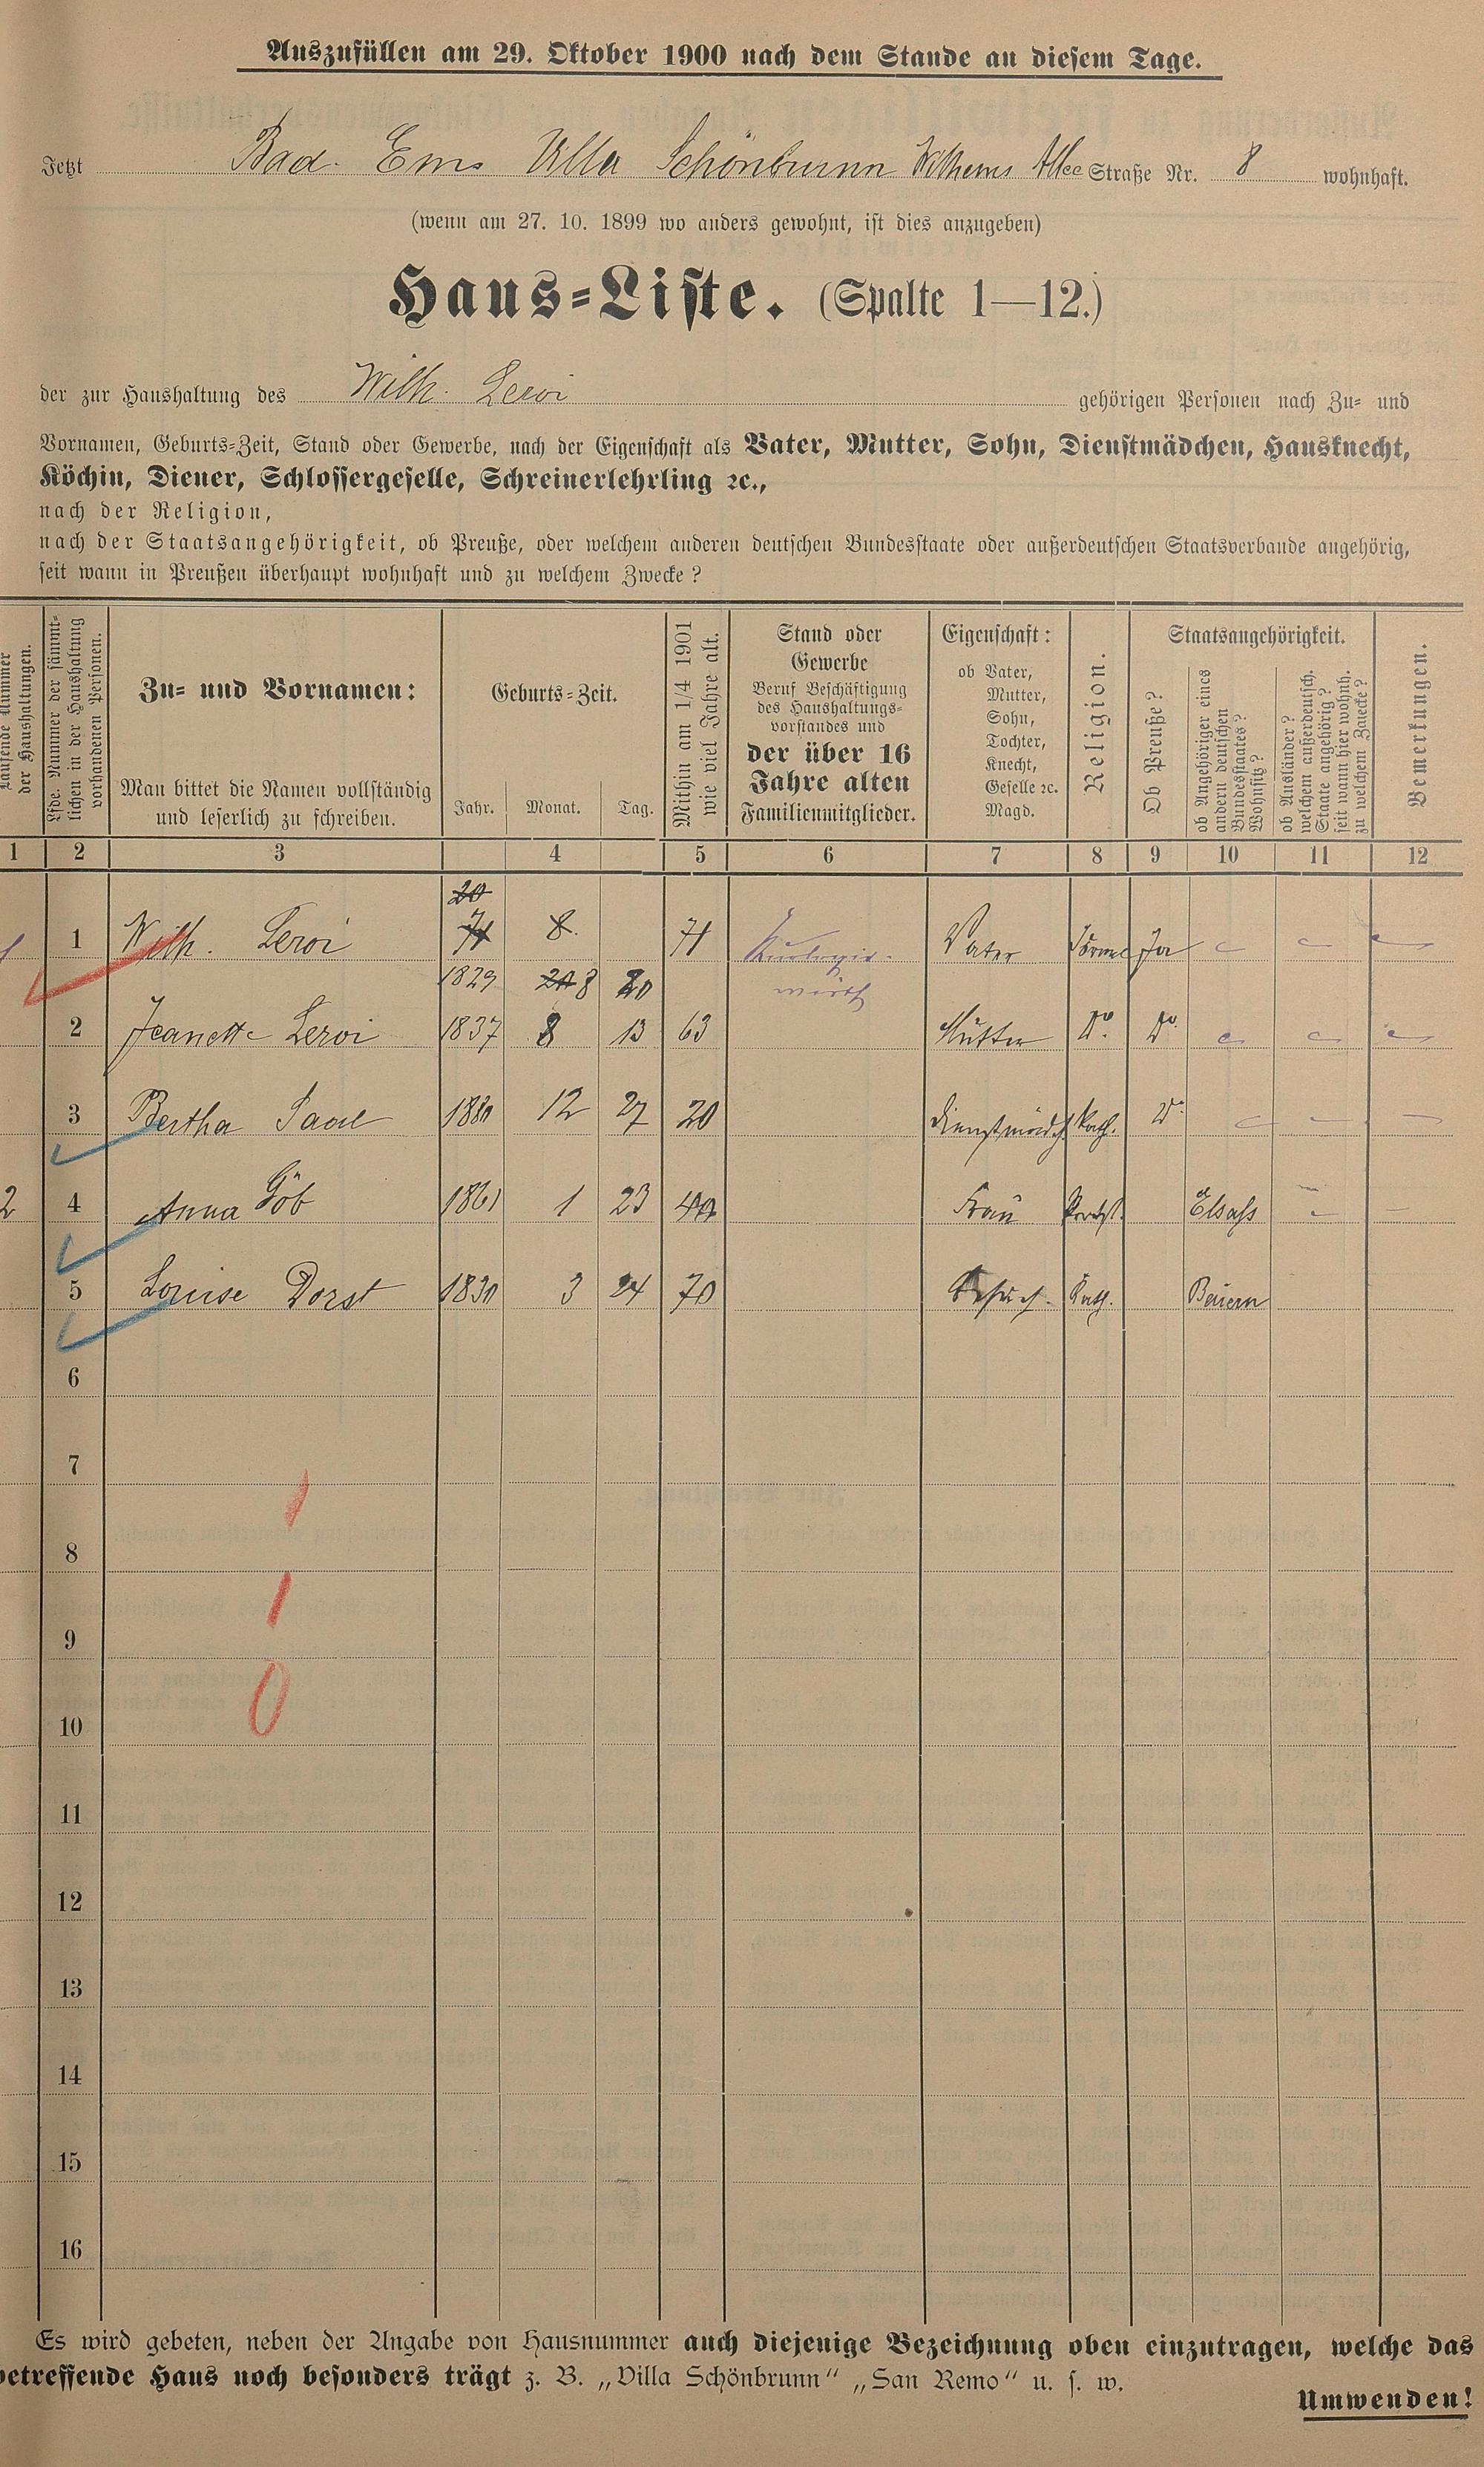 Auszufüllen am 29. Oktober 1900 nach dem Stande an diesem Tage.
Jetzt Bad Ems Villa Schönbrunn Wilhems Allee Straße Nr. 8 wohnhaft.
(wenn am 27. 10. 1899 wo anders gewohnt, ist dies anzugeben)
Haus=Liste. (Spalte 1—12.)
der zur Haushaltung des Wilh. Leroi gehörigen Personen nach Zu= und
Vornamen, Geburts=Zeit, Stand oder Gewerbe, nach der Eigenschaft als Vater, Mutter, Sohn, Dienstmädchen, Hausknecht,
Köchin, Diener, Schlossergeselle, Schreinerlehrling ꝛc.,
nach der Religion,
nach der Staatsangehörigkeit, ob Preuße, oder welchem anderen deutschen Bundesstaate oder außerdeutschen Staatsverbande angehörig,
seit wann in Preußen überhaupt wohnhaft und zu welchem Zwecke?
Laufende Nummer
der Haushaltungen.
Lfde. Nummer der sämmt=
lichen in der Haushaltung
vorhandenen Personen.
Zu= und Vornamen:
Man bittet die Namen vollständig
und leserlich zu schreiben.
Geburts=Zeit.
Jahr. Monat. Tag.
Mithin am 1/4 1901
wie viel Jahre alt.
Stand oder
Gewerbe
Beruf Beschäftigung
des Haushaltungs=
vorstandes und
der über 16
Jahre alten
Familienmitglieder.
Eigenschaft:
ob Vater,
Mutter,
Sohn,
Tochter,
Knecht,
Geselle ꝛc.
Magd.
Religion.
Staatsangehörigkeit.
Ob Preuße?
ob Angehöriger eines
andern deutschen
Bundesstaates?
Wohnsitz?
ob Ausländer?
welchem außerdeutsch.
Staate angehörig?
seit wann hier wohnh.
zu welchem Zwecke?
Bemerkungen.
1 2 3 4 5 6 7 8 9 10 11 12
20
1 Wilh. Leroi 71 8. 71 Vater Ja
1829 8 20
2 Jeanette Leroi 1837 8 13 63 Mutter do. do.
3 Bertha Saal 1880 12 27 20 Dienstmädch Kath. do.
2 4 Anna Göb 1861 1 23 40 Frau Protest. Elsass
5 Louise Dorst 1830 3 24 70 Besuch. Kath. Baiern
6
7
1
8
1
9
0
10
11
12
13
14
15
16
Es wird gebeten, neben der Angabe von Hausnummer auch diejenige Bezeichnung oben einzutragen, welche das
betreffende Haus noch besonders trägt z. B. „Villa Schönbrunn“ „San Remo“ u. s. w.
Umwenden!